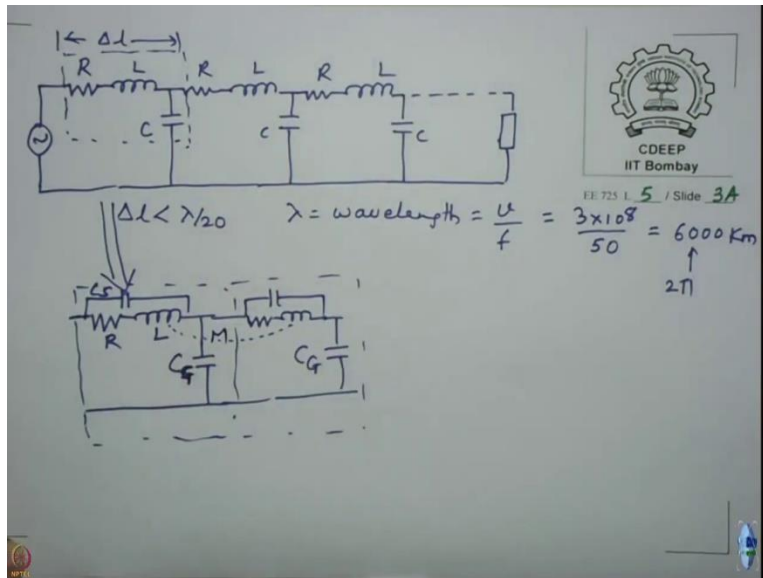 Δl
R L R L R L
C C C
CDEEP
IIT Bombay
EE 725 L 5 / Slide 3A
Δl < λ/20 λ = wavelength = v/f = 3×10⁸/50 = 6000 Km
2π
CS
R L M
CG CG
NPTEL